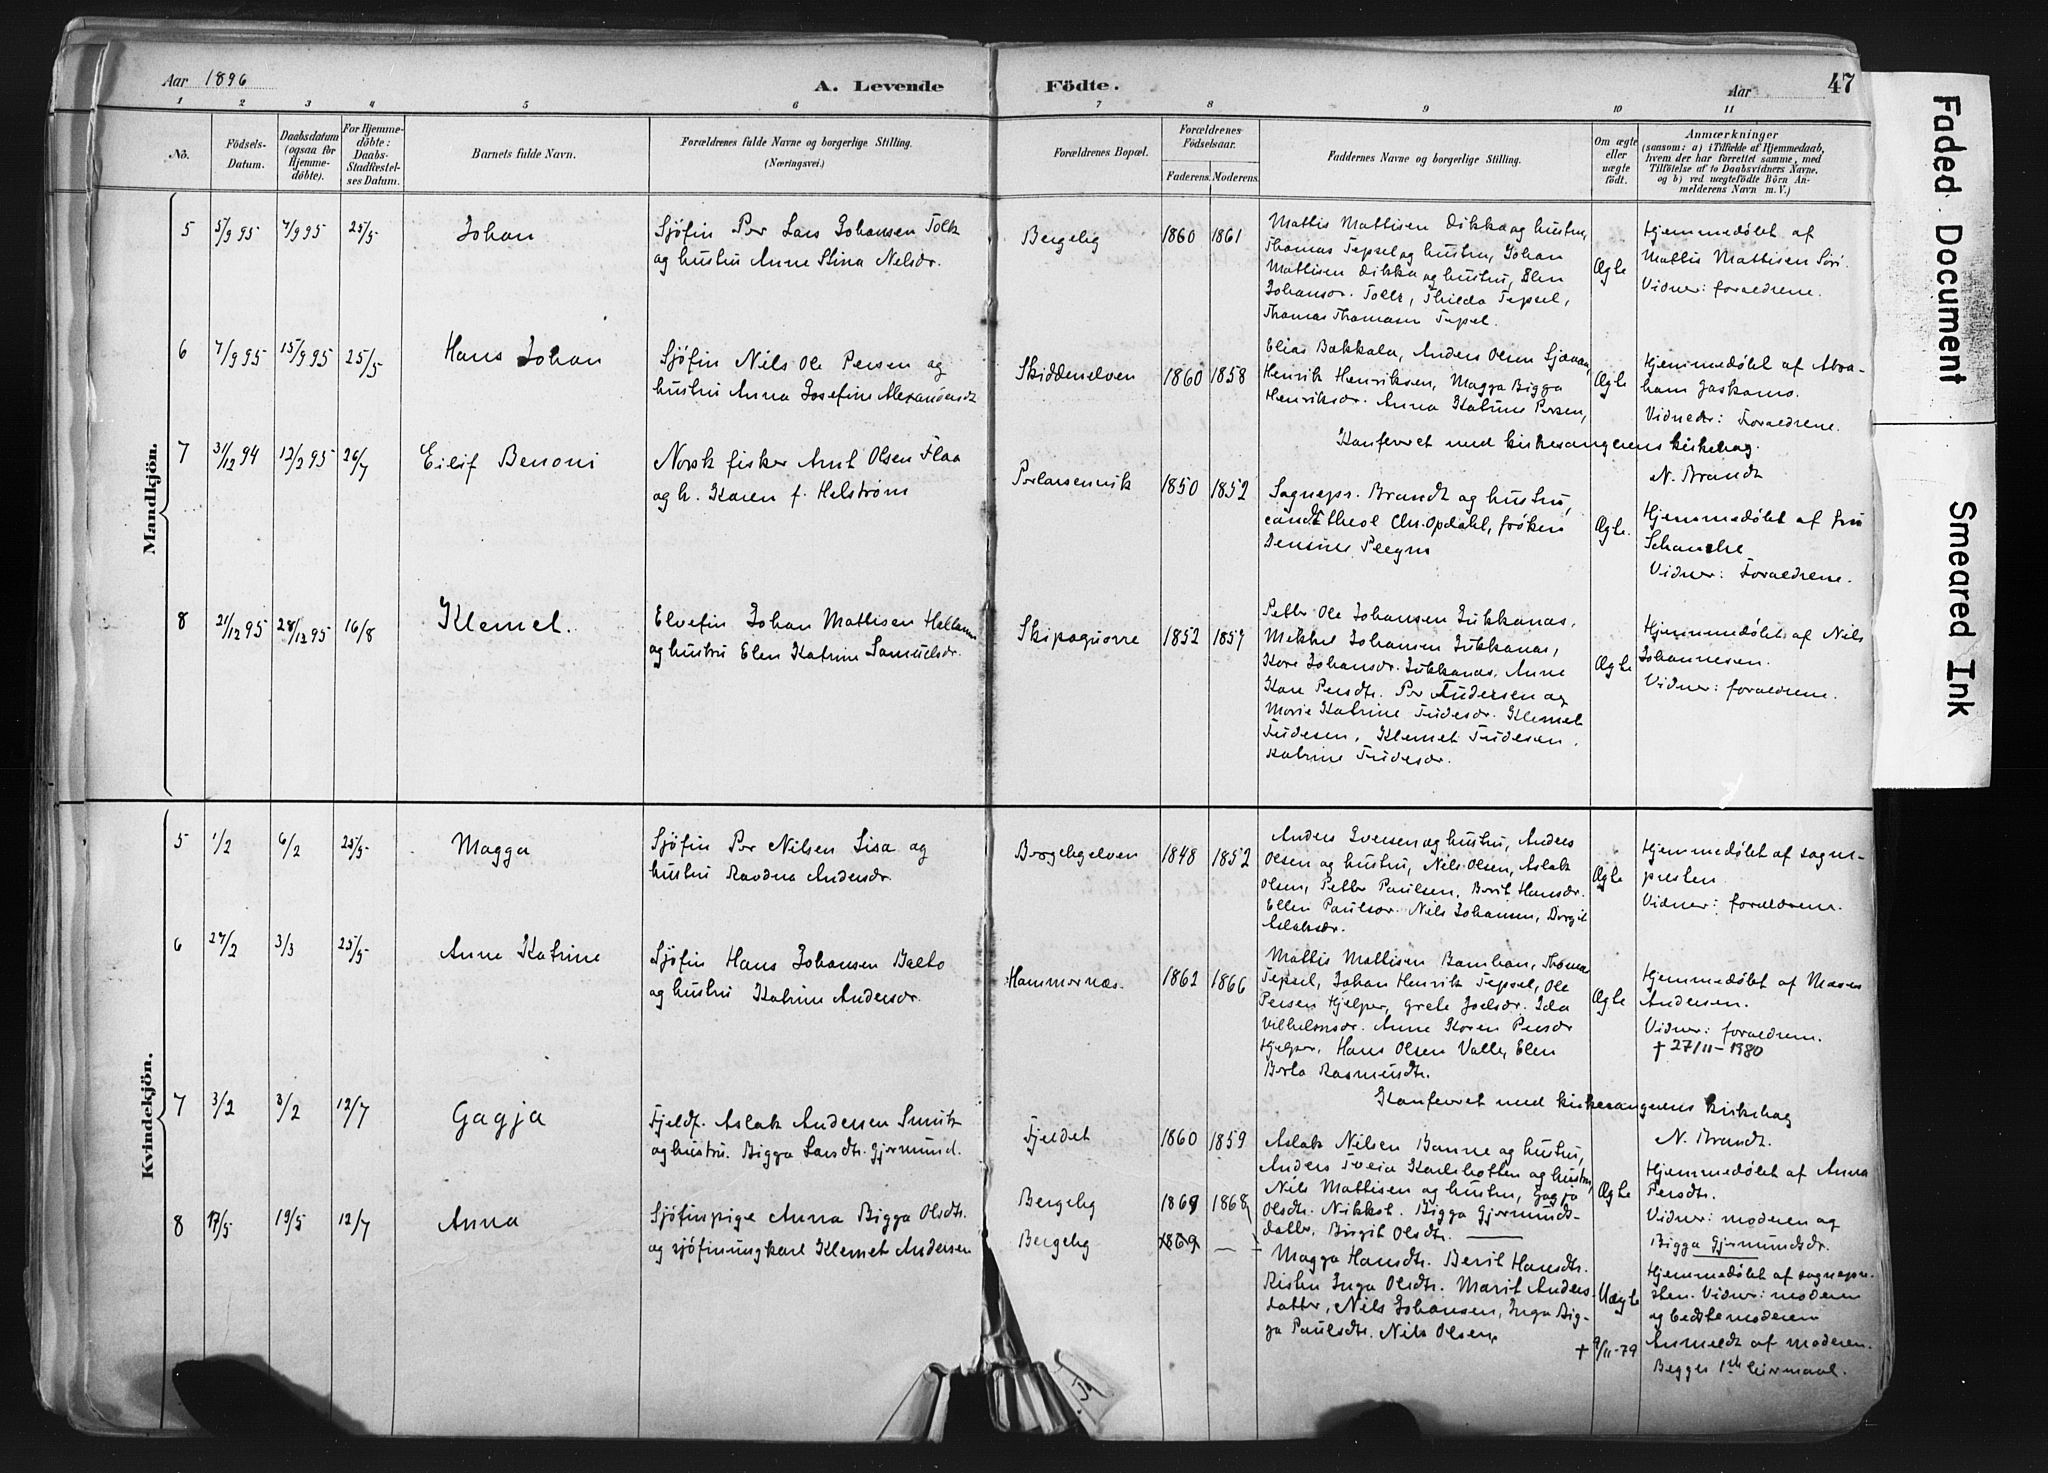 Aar 1896
A. Levende
Födte.
Aar
47
1 2 3 4 5 6 7 8 9 10 11
No.
Födsels-
Datum.
Daabsdatum
(ogsaa for
Hjemme-
döbte).
For Hjemme-
döbte:
Daabs-
Stadfæstel-
ses Datum.
Barnets fulde Navn.
Forældrenes fulde Navne og borgerlige Stilling.
(Næringsvei.)
Forældrenes Bopæl.
Forældrenes
Födselsaar.
Faderens. Moderens.
Faddernes Navne og borgerlige Stilling.
Om ægte
eller
uægte
født.
Anmærkninger
(saasom: a) i Tilfælde af Hjemmedaab,
hvem der har forrettet samme, med
Tilföielse af to Daabsvidners Navne,
og b) ved uægtefödte Börn An-
melderens Navn m. V.)
Mandkjön.
5 5/9 95 7/9 95 25/5 Johan
Sjøfin Per Lars Johansen Tolk
og hustru Anne Stina Nelsdr.
Bergeby 1860 1861
Mattis Mattisen Dikka og hustru,
Thomas Tepsel og hustru, Johan
Mattisen Dikka og hustru, Elen
Johansdr. Tolk, Thilda Tepsel,
Thomas Thomasen Tepsel.
Ægte
Hjemmedøbt af
Mattis Mattisen Siri.
Vidner: forældrene.
6 7/9 95 15/9 95 25/5 Hans Johan
Sjøfin Nils Ole Persen og
hustru Anna Josefine Alexandersdt
Skiddenelven 1860 1858
Elias Bakkala, Anders Olsen Sjaavan,
Henrik Henriksen, Magga Bigga
Henriksdr. Anna Katrine Persen,
Ægte
Hjemmedøbt af Abra-
ham Gaskamo.
Vidner: Forældrene.
Konfereret med kirkesangerens kirkebog.
N. Brandt
7 31/12 94 12/2 95 26/7 Eilif Benoni
Norsk fisker Arnt Olsen Flaa
og h. Karen f. Helstrøm
Perlarsenvik 1850 1852
Sognepr. Brandt og hustru,
cand. theol Chr. Opdahl, frøken
Ægte.
Hjemmedøbt af fru
Schanche
Vidner: Forældrene.
8 21/12 95 28/12 95 16/8 Klemet.
Elvefin Johan Mattisen Hellman
og hustru Elen Katrine Samuelsdr.
Skipagurre 1852 1857
Petter Ole Johansen Jukkanas,
Mikkel Johansen Jukkanas,
Kare Johansdr. Jukkanas, Anne
Kare Persdtr. Per Fudesen og
Marie Katrine Fudesdr. Klemet
Fudesen, Klemet Fudesen,
Katrine Fudesdr.
Ægte
Hjemmedøbt af Nils
Johannesen.
Vidner: forældrene.
Kvindekjön.
5 1/2 6/2 25/5 Magga
Sjøfin Per Nilsen Lisa og
hustru Ravdna Andersdr.
Bergebyelven 1848 1852
Anders Iversen og hustru, Anders
Olsen og hustru, Nils Olsen, Aslak
Olsen, Petter Paulsen, Berit Hansdr.
Ellen Paulsdr. Nils Johansen, Birgit
Aslaksdr.
Ægte
Hjemmedøbt af sogne-
presten.
Vidner: forældrene.
6 27/2 3/3 25/5 Anne Katrine
Sjøfin Hans Johansen Balto
og hustru Katrine Andersdr.
Hammernæs. 1862 1866
Mattis Mattisen Banhan, Thomas
Tepsel, Johan Henrik Tepsel, Ole
Persen Hjelper, Grete Joelsdr. Ida
Vilhelmsdr. Anne Karen Persdr
Hjelper, Hans Olsen Valle, Elen
Berta Rasmusdtr.
Ægte
Hjemmedøbt af Moses
Andersen.
Vidner: forældrene.
† 27/11-1980
Konfereret med kirkesangerens kirkebog
N. Brandt.
7 3/2 3/2 12/7 Gagja
Fjeldf. Aslak Andersen Smuk
og hustru. Bigga Larsdtr. Gjermund.
Fjeldet 1860 1859
Aslak Nilsen Banne og hustru,
Anders Tveia Karlsbotten og hustru,
Nils Mattisen og hustru, Gagja
Olsdtr. Nikkol. Bigga Gjermunds-
datter, Birgit Olsdtr.
Ægte
Hjemmedøbt af Anna
Persdtr.
Vidner: moderen og
Bigga Gjermundsdr.
8 17/5 19/5 12/7 Anna
Sjøfinpige Anna Bigga Olsdtr.
og sjøfinungkarl Klemet Andersen
Bergeby 1869 1868
Bergeby 1869 —
Magga Hansdtr. Berit Hansdtr.
Risten Inga Olsdtr. Marit Anders-
datter, Nils Johansen, Inga Big-
ga Paulsdtr. Nils Olsen,
Uægte
Hjemmedøbt af sognepre-
sten. Vidner: moderen
og bedstemoderen
Anmeldt af moderen.
Begges 1ste leiermaal.
† 9/11-79
Faded Document
Smeared Ink